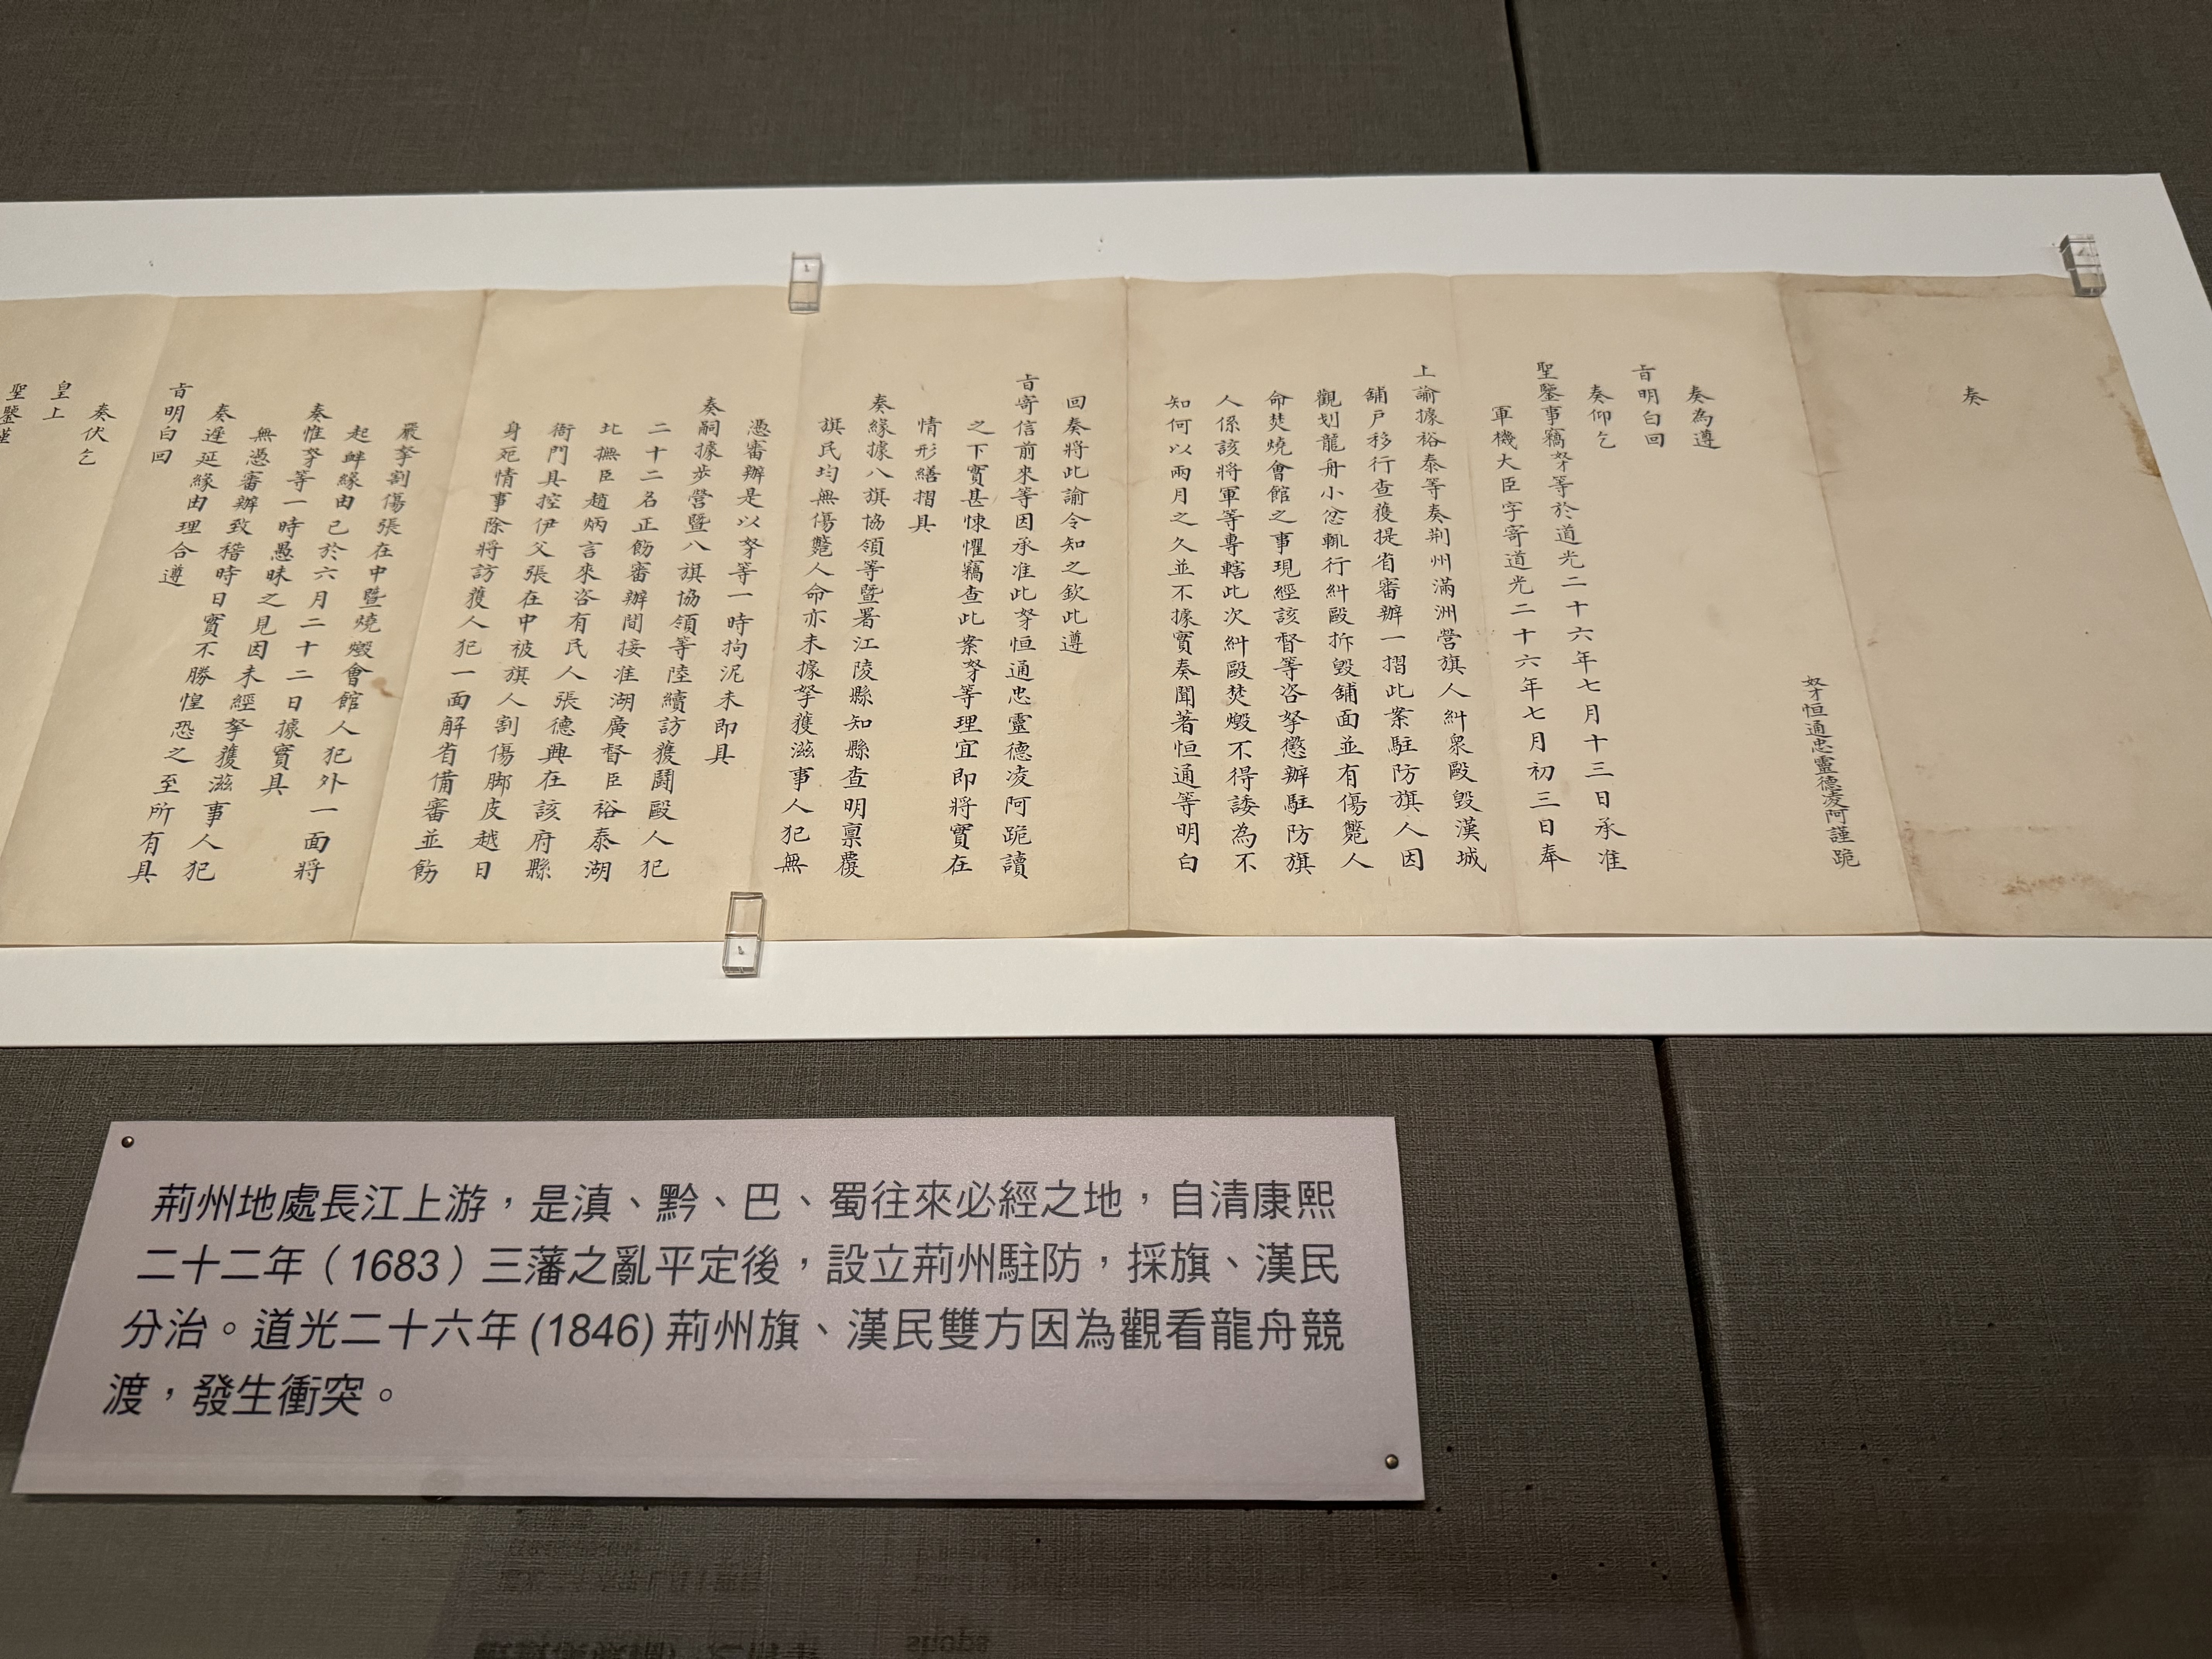 奏
奴才恒通忠靈德凌阿謹跪
奏為遵
旨明白回
奏仰乞
聖鑒事竊奴才等於道光二十六年七月十三日承准
軍機大臣字寄道光二十六年七月初三日奉
上諭據裕泰等奏荆州滿洲營旗人糾衆毆毀漢城
舖戶移行查獲提省審辦一摺此案駐防旗人因
觀划龍舟小忿輒行糾毆拆毀舖面並有傷斃人
命焚燒會館之事現經該督等咨拏懲辦駐防旗
人係該將軍等專轄此次糾毆焚燬不得諉為不
知何以兩月之久並不據實奏聞著恒通等明白
回奏將此諭令知之欽此遵
旨寄信前來等因承准此奴才恒通忠靈德凌阿跪讀
之下實甚悚懼竊查此案奴才等理宜即將實在
情形繕摺具
奏緣據八旗協領等暨署江陵縣知縣查明稟覆
旗民均無傷斃人命亦未據拏獲滋事人犯無
憑審辦是以奴才等一時拘泥未即具
奏嗣據步營暨八旗協領等陸續訪獲鬪毆人犯
二十二名正飭審辦間接准湖廣督臣裕泰湖
北撫臣趙炳言來咨有民人張德興在該府縣
衙門具控伊父張在中被旗人割傷脚皮越日
身死情事除將訪獲人犯一面解省備審並飭
嚴拏割傷張在中暨燒燬會館人犯外一面將
起衅緣由已於六月二十二日據實具
奏惟奴才等一時愚昧之見因未經拏獲滋事人犯
無憑審辦致稽時日實不勝惶恐之至所有具
奏遲延緣由理合遵
旨明白回
奏伏乞
皇上
聖鑒謹
荊州地處長江上游，是滇、黔、巴、蜀往來必經之地，自清康熙
二十二年（1683）三藩之亂平定後，設立荊州駐防，採旗、漢民
分治。道光二十六年 (1846) 荊州旗、漢民雙方因為觀看龍舟競
渡，發生衝突。